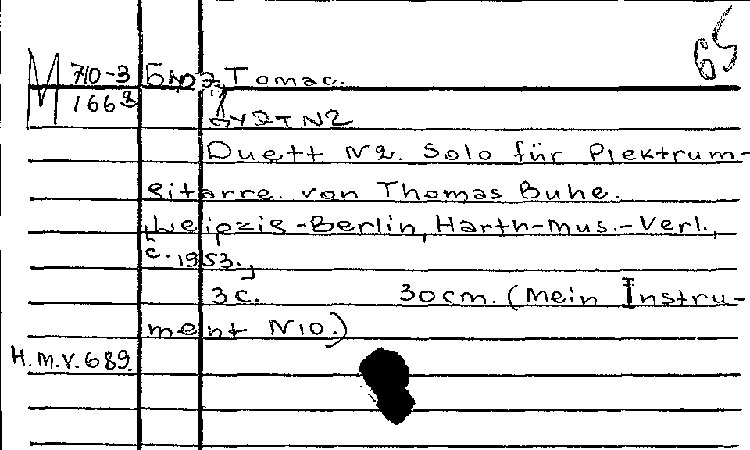 65
М 710-3 Буэ, Томас.
1663
Дуэт N2
Duett N2. Solo für Plektrum-
gitarre. von Thomas Buhe.
Leipzig-Berlin, Harth-Mus.-Verl.,
c. 1953.,
3c. 30cm. (Mein Instru-
ment N10.)
H.M.V.689